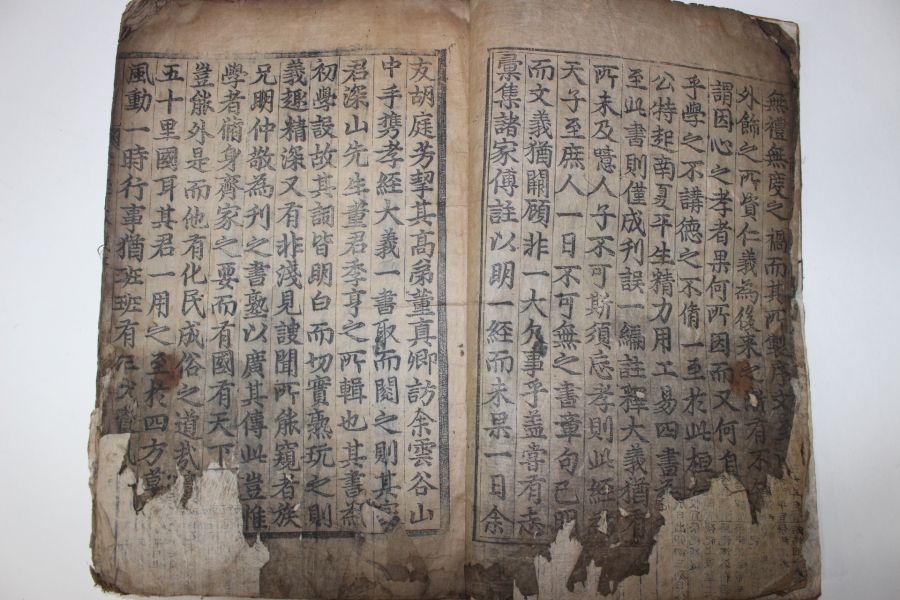 無禮無度之禍而其所製序文
外飾之所資仁義為後來之有不
謂因心之孝者果何所因而又何自
乎學之不講德之不脩一至於此桓
公特起南夏平生精力用工易四書
至此書則僅成刊誤一編註釋大義猶有
所未及噫人子不可斯須忘孝則此經
天子至庶人一日不可無之書章句已明
而文義猶闕顧非一大欠事乎盖嘗有志
彙集諸家傅註以明一經而未果一日余
友胡庭芳挈其高弟董真卿訪余雲谷山
中手携孝經大義一書取而閱之則其家
君深山先生董君季亨之所輯也其書為
初學設故其詞皆明白而切實熟玩之則
義趣精深又有非淺見謏聞所能窺者族
兄明仲敬為刊之書塾以廣其傳此豈惟
學者脩身齊家之要而有國有天下
豈能外是而他有化民成俗之道哉
五十里國耳其君一用之至於四方草
風動一時行事猶班班有